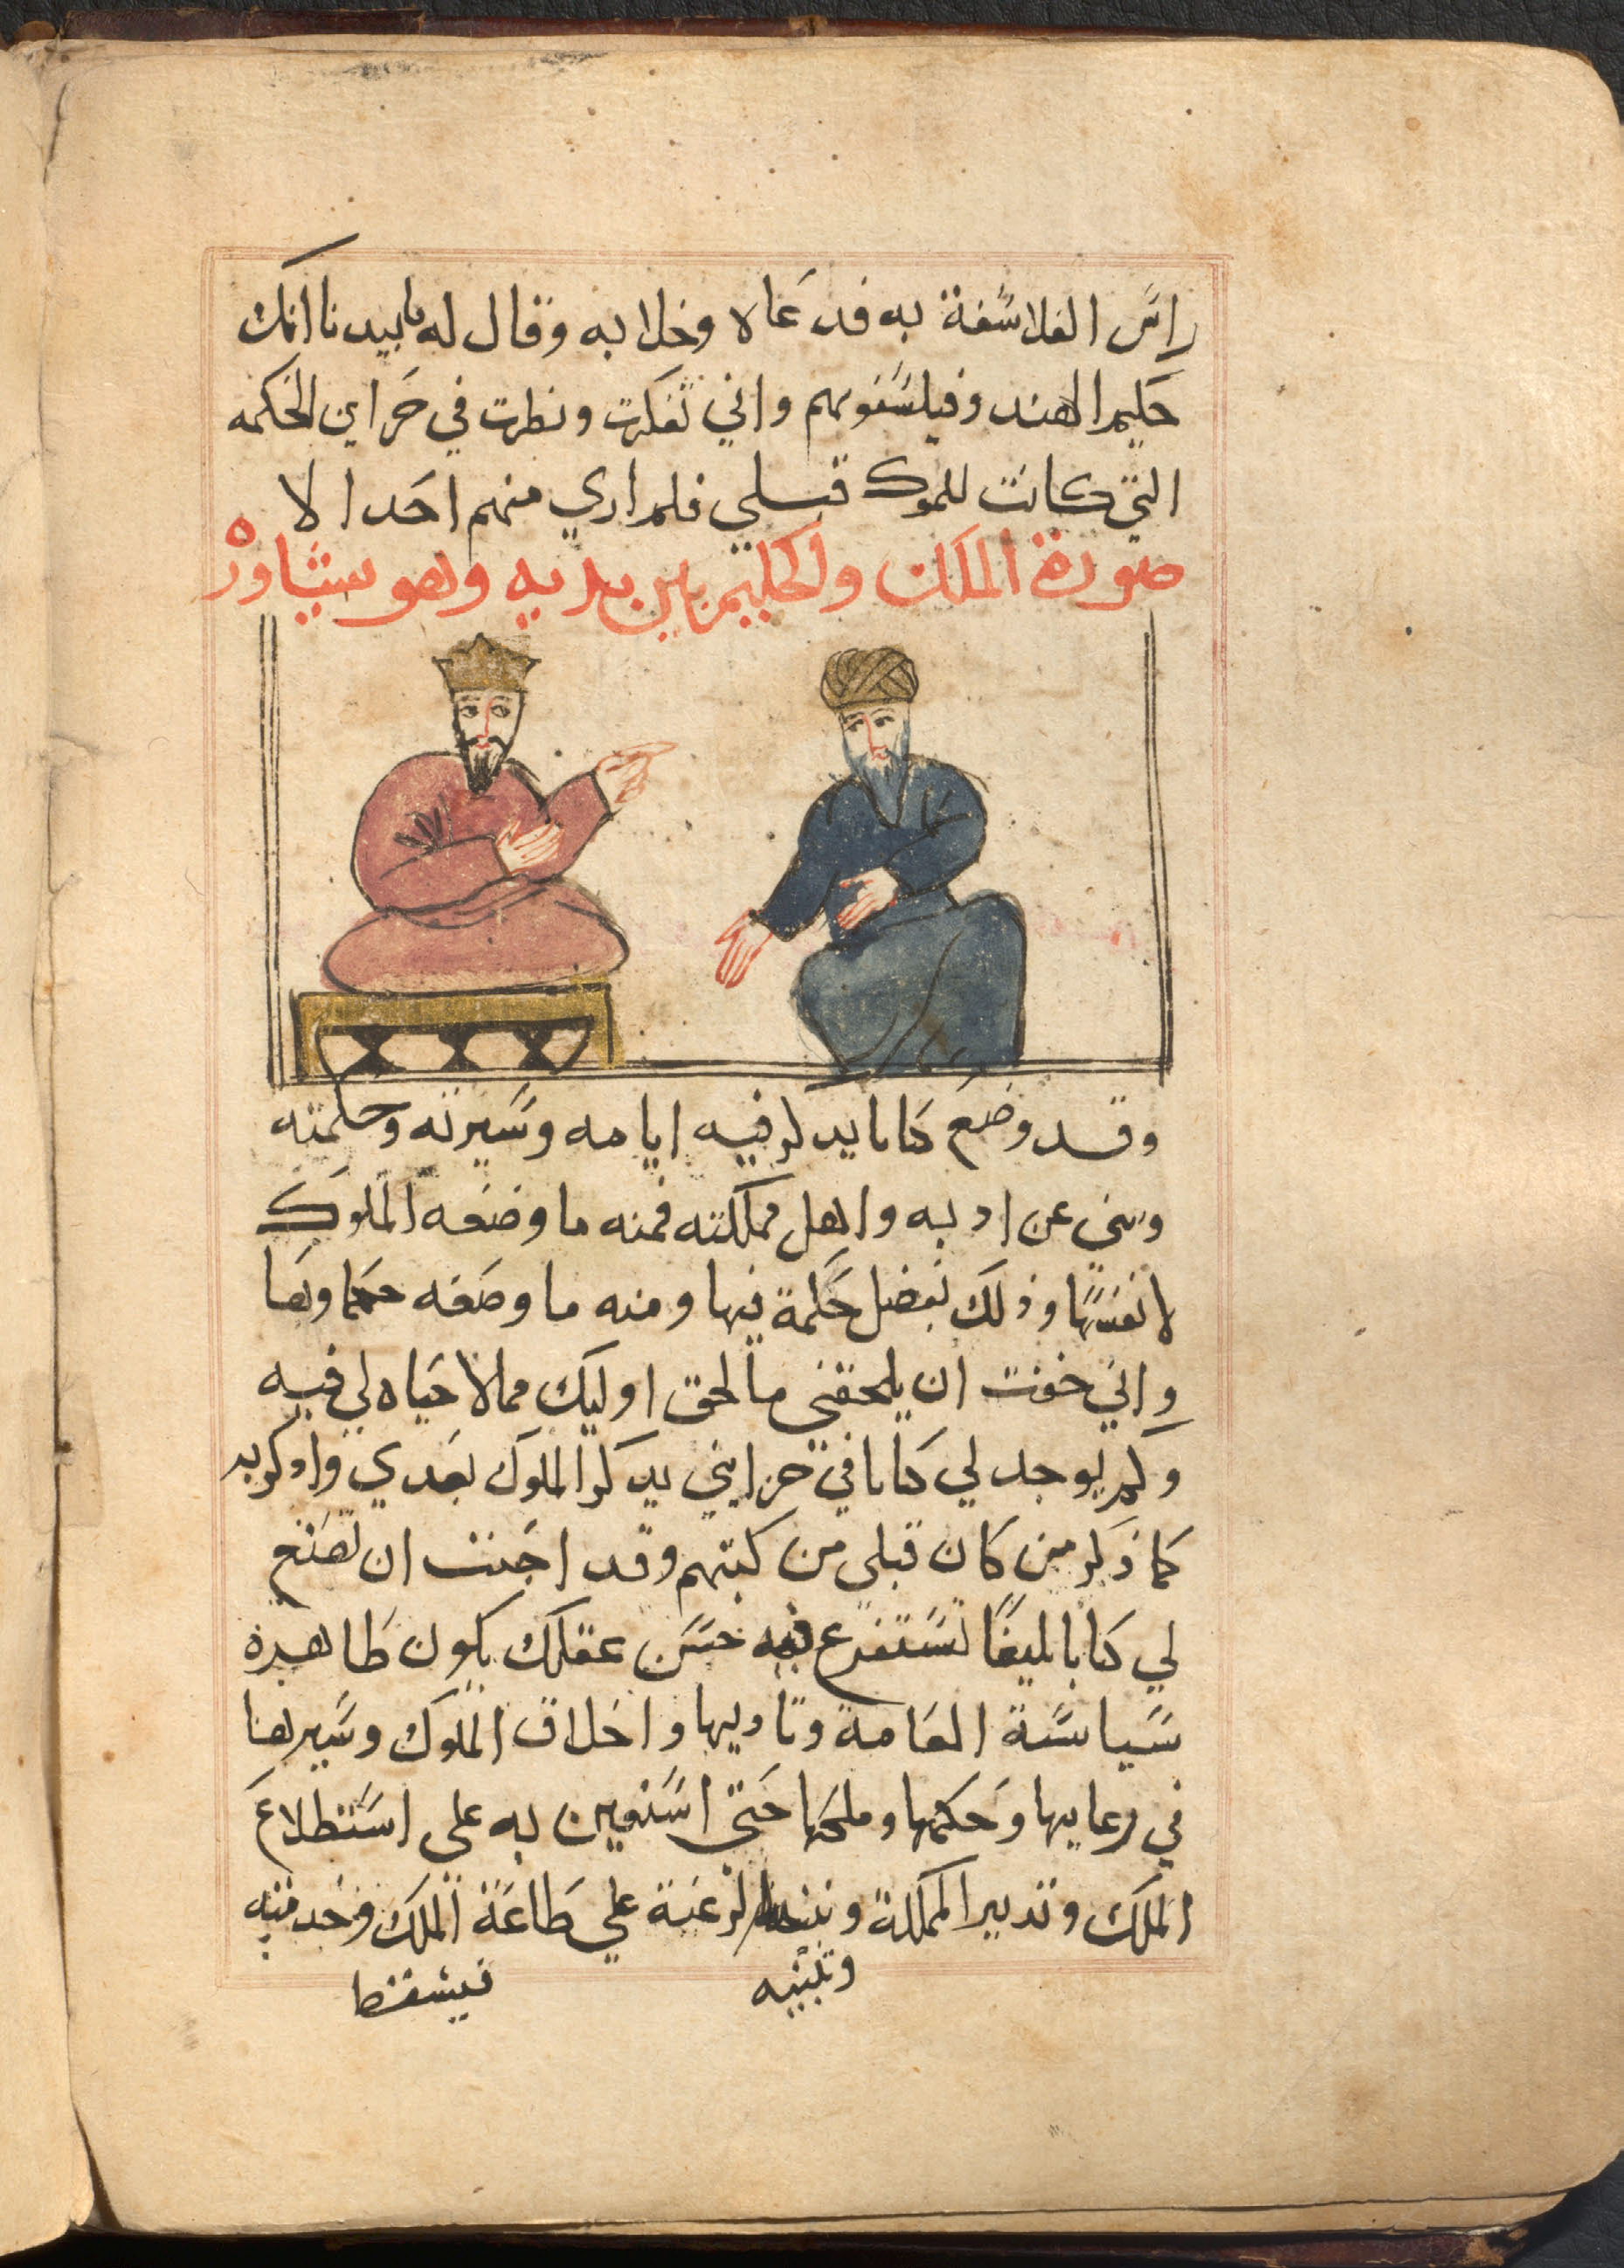 راس الفلاسفة به فدعاه وخلا به وقال له يا بيدنا انك
حكيم الهند وفيلسوفهم واني تفكرت ونظرت في خزاين الحكمه
التي كانت للملوك قبلي فلم اري منهم احدا الا
صورة الملك والحكيم بين يديه وهو يشاوره
وقد وضع كتابا يذكر فيه ايامه وسيرته وحكمته
وينبي عن ادبه واهل مملكته فمنه ما وضعه الملوك
لانفسها وذلك لفضل حكمة فيها ومنه ما وضعه حكماوها
واني خفت ان يلحقني ما لحق اوليك مما لا حياه لي فيه
ولم يوجد لي كتابا في خزايني يذكر الملوك بعدي واذكر به
كما ذكر من كان قبلي من كتبهم وقد احببت ان تصنع
لي كتابا بليغا تستفرغ فيه حسن عقلك يكون ظاهره
سياسة العامة وتاديبها واخلاق الملوك وسيرها
في رعايها وحكمها وملحها حتى استعين به على استطلاع
الملك وتدبير المملكة الرغبة علي طاعة الملك وخدمته